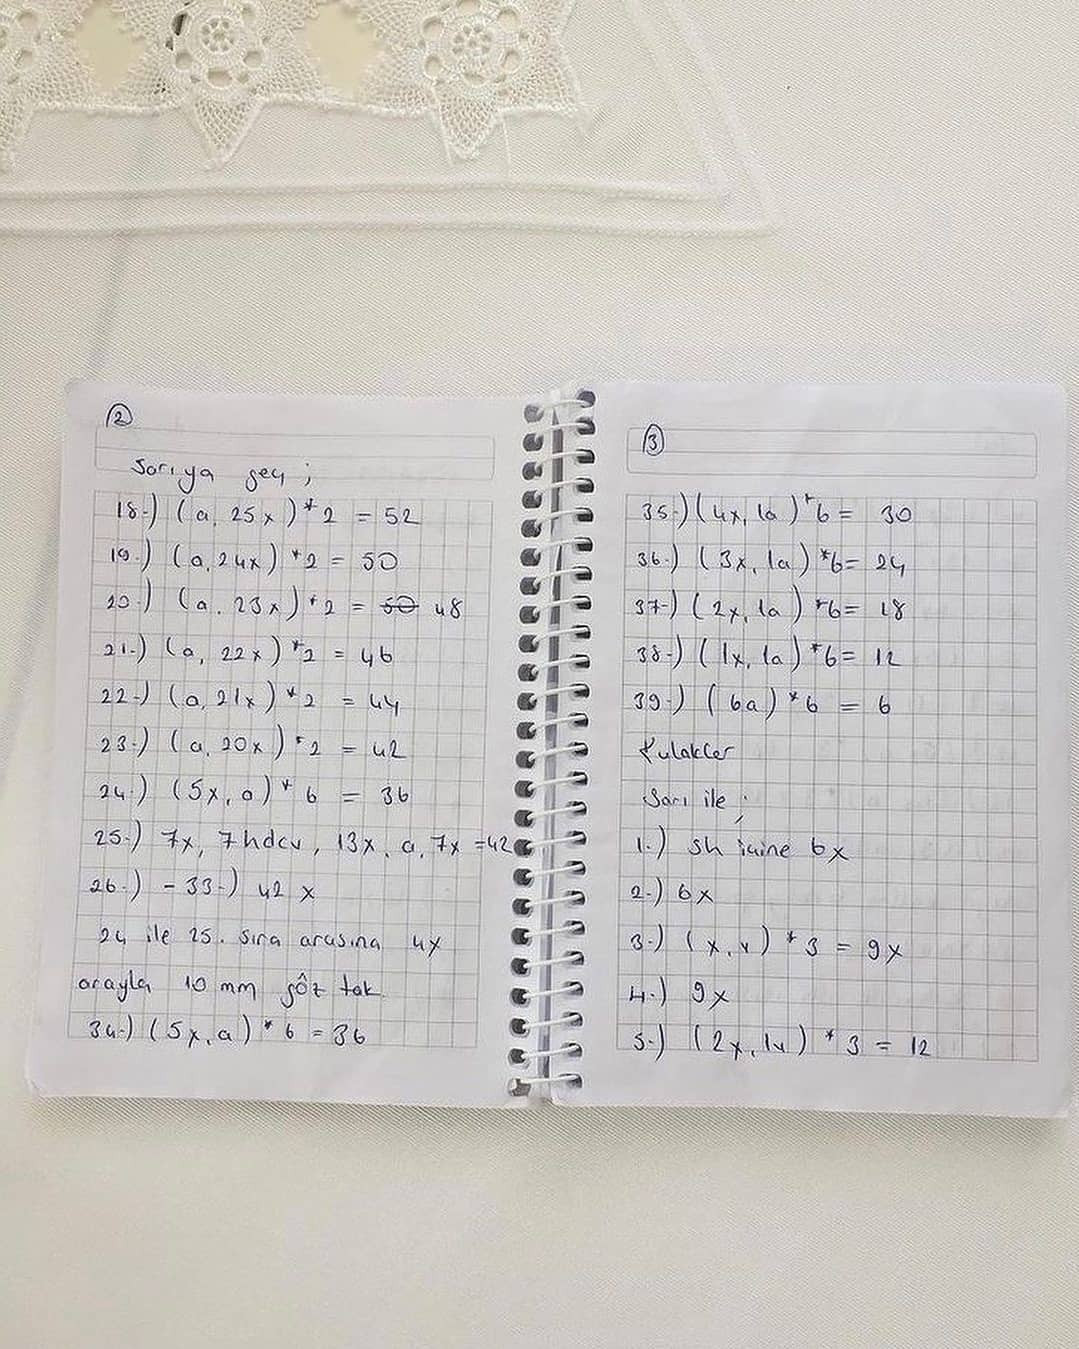 2
Sarıya geç ;
18-) (a, 25x)*2 = 52
19-) (a, 24x) *2 = 50
20-) (a, 23x)*2 = 50 48
21-) (a, 22x)*2 = 46
22-) (a, 21x)*2 = 44
23-) (a, 20x)*2 = 42
24-) (5x, a)* 6 = 36
25-) 7x, 7hdcv, 13x, a, 7x =42
26-) - 33-) 42 x
24 ile 25. sıra arasına 4x
arayla 10 mm göz tak
34-) (5x, a)* 6 = 36
3
35-) (4x, 1a)*6 = 30
36-) (3x, 1a) *6= 24
37-) (2x, 1a) *6= 18
38-) (1x, 1a) *6= 12
39-) (6a)*6 = 6
Kulaklar
Sarı ile ;
1-) sh içine 6x
2-) 6x
3-) (x, v) * 3 = 9x
4-) 9x
5-) (2x, 1v) * 3 = 12